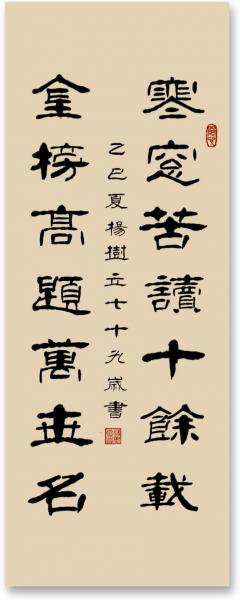 寒窓苦讀十餘載
金榜高題萬世名
乙巳夏楊樹立七十九歲書